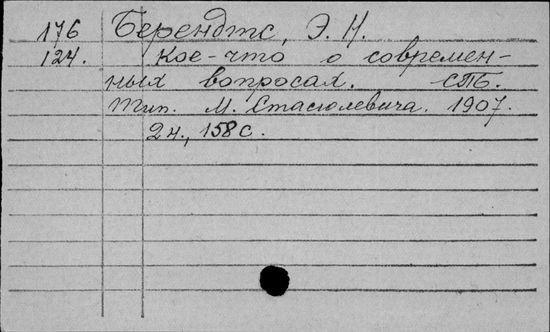 176 Берендтс, Э. Н.
124. Кое-что о современ-
ных вопросах. СПБ.
Тип. М. Стасюлевича. 1907.
2 н., 158 с.